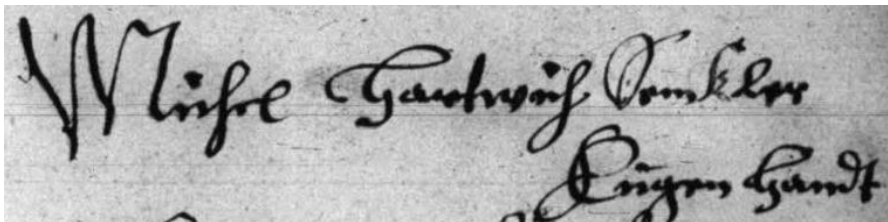 Michel Hartwich Semkler
Eugen Handt